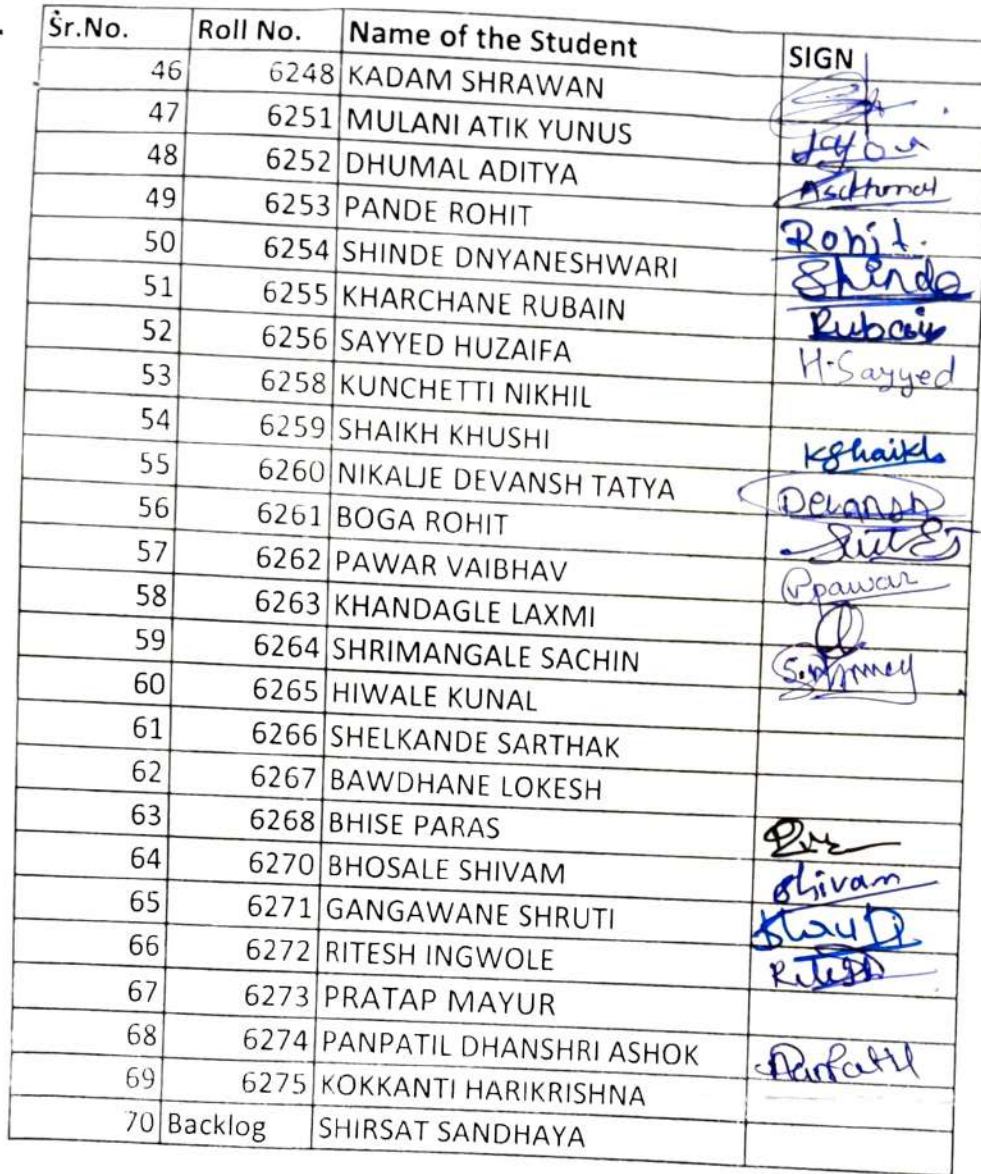 Sr.No. Roll No. Name of the Student SIGN
46 6248 KADAM SHRAWAN
47 6251 MULANI ATIK YUNUS
48 6252 DHUMAL ADITYA
49 6253 PANDE ROHIT Rohit.
50 6254 SHINDE DNYANESHWARI Shinde
51 6255 KHARCHANE RUBAIN Rubain
52 6256 SAYYED HUZAIFA H.Sayyed
53 6258 KUNCHETTI NIKHIL
54 6259 SHAIKH KHUSHI KShaikh
55 6260 NIKALJE DEVANSH TATYA Devansh
56 6261 BOGA ROHIT
57 6262 PAWAR VAIBHAV Ppawar
58 6263 KHANDAGLE LAXMI
59 6264 SHRIMANGALE SACHIN
60 6265 HIWALE KUNAL
61 6266 SHELKANDE SARTHAK
62 6267 BAWDHANE LOKESH
63 6268 BHISE PARAS
64 6270 BHOSALE SHIVAM Shivam
65 6271 GANGAWANE SHRUTI
66 6272 RITESH INGWOLE Ritesh
67 6273 PRATAP MAYUR
68 6274 PANPATIL DHANSHRI ASHOK
69 6275 KOKKANTI HARIKRISHNA
70 Backlog SHIRSAT SANDHAYA